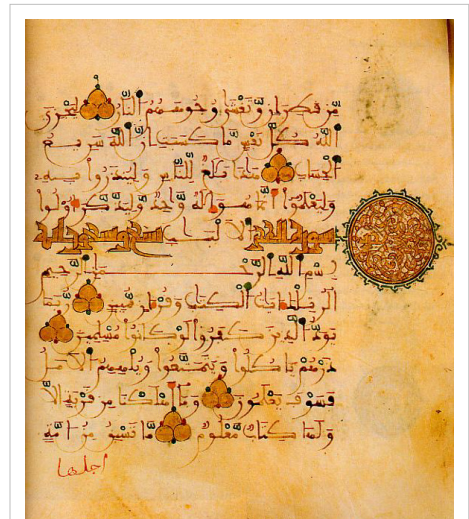 من قطران وتغشى وجوههم النار ليجزى
الله كل نفس ما كسبت ان الله سريع
الحساب هذا بلغ للناس ولينذروا به
وليعلموا انما هو اله وحد وليذكر اولوا
سورة الحجر الالبب تسع وتسعون اية
بسم الله الرحمن الرحيم
الر تلك ايت الكتب وقران مبين ربما
يود الذين كفروا لو كانوا مسلمين
ذرهم ياكلوا ويتمتعوا ويلههم الامل
فسوف يعلمون وما اهلكنا من قرية الا
ولها كتاب معلوم ما تسبق من امة
اجلها